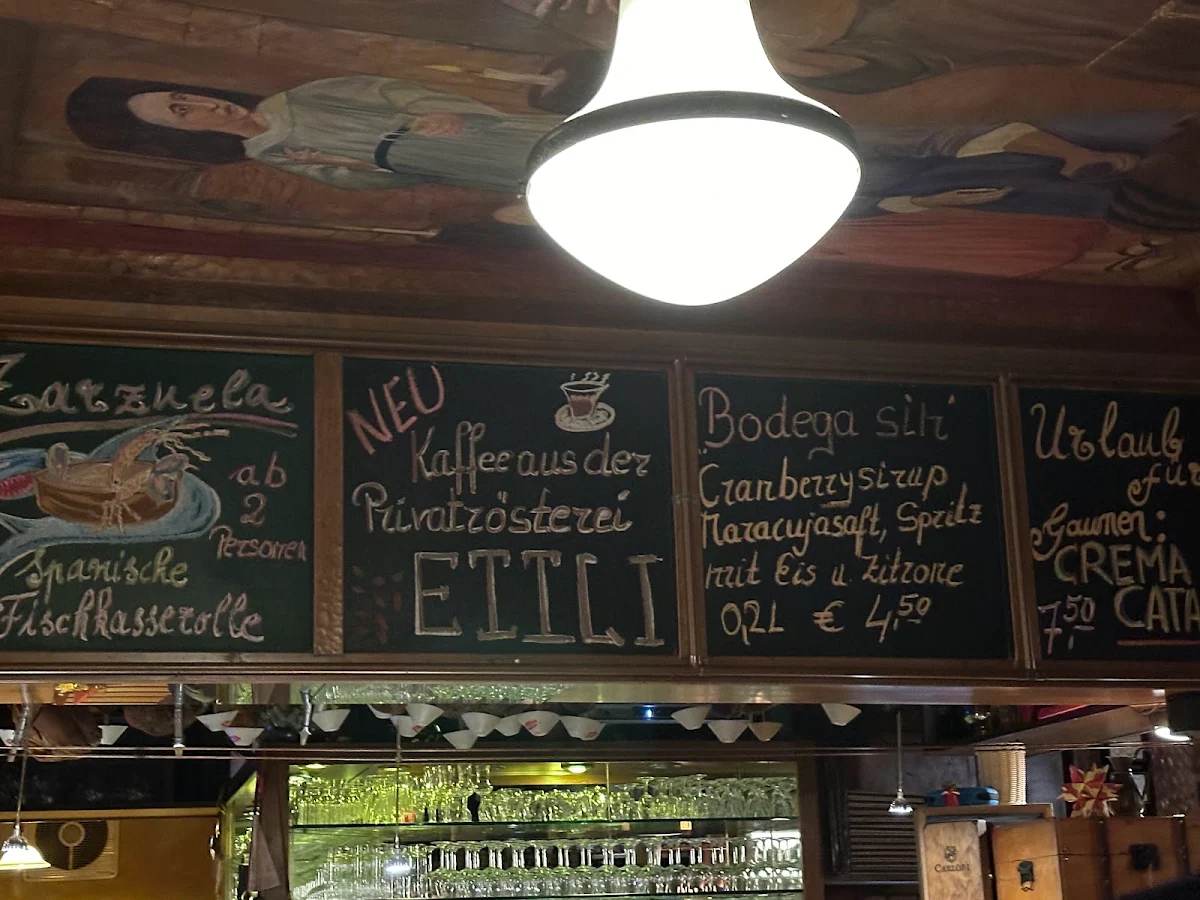 Zarzuela
ab
2
Personen
Spanische
Fischkasserolle
NEU
Kaffee aus der
Privatrösterei
ETTLI
Bodega
Cranberrysirup
Maracujasaft, Spritz
mit Eis u. Zitrone
0,2L € 4,50
Urlaub
für
Gaumen:
CREMA
7,50 CATA